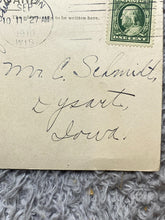 SEP
10 11-27 AM
1910
WIS.
to be written here.
ONE CENT
Mr. C. Schmidt,
Dysart,
Iowa.